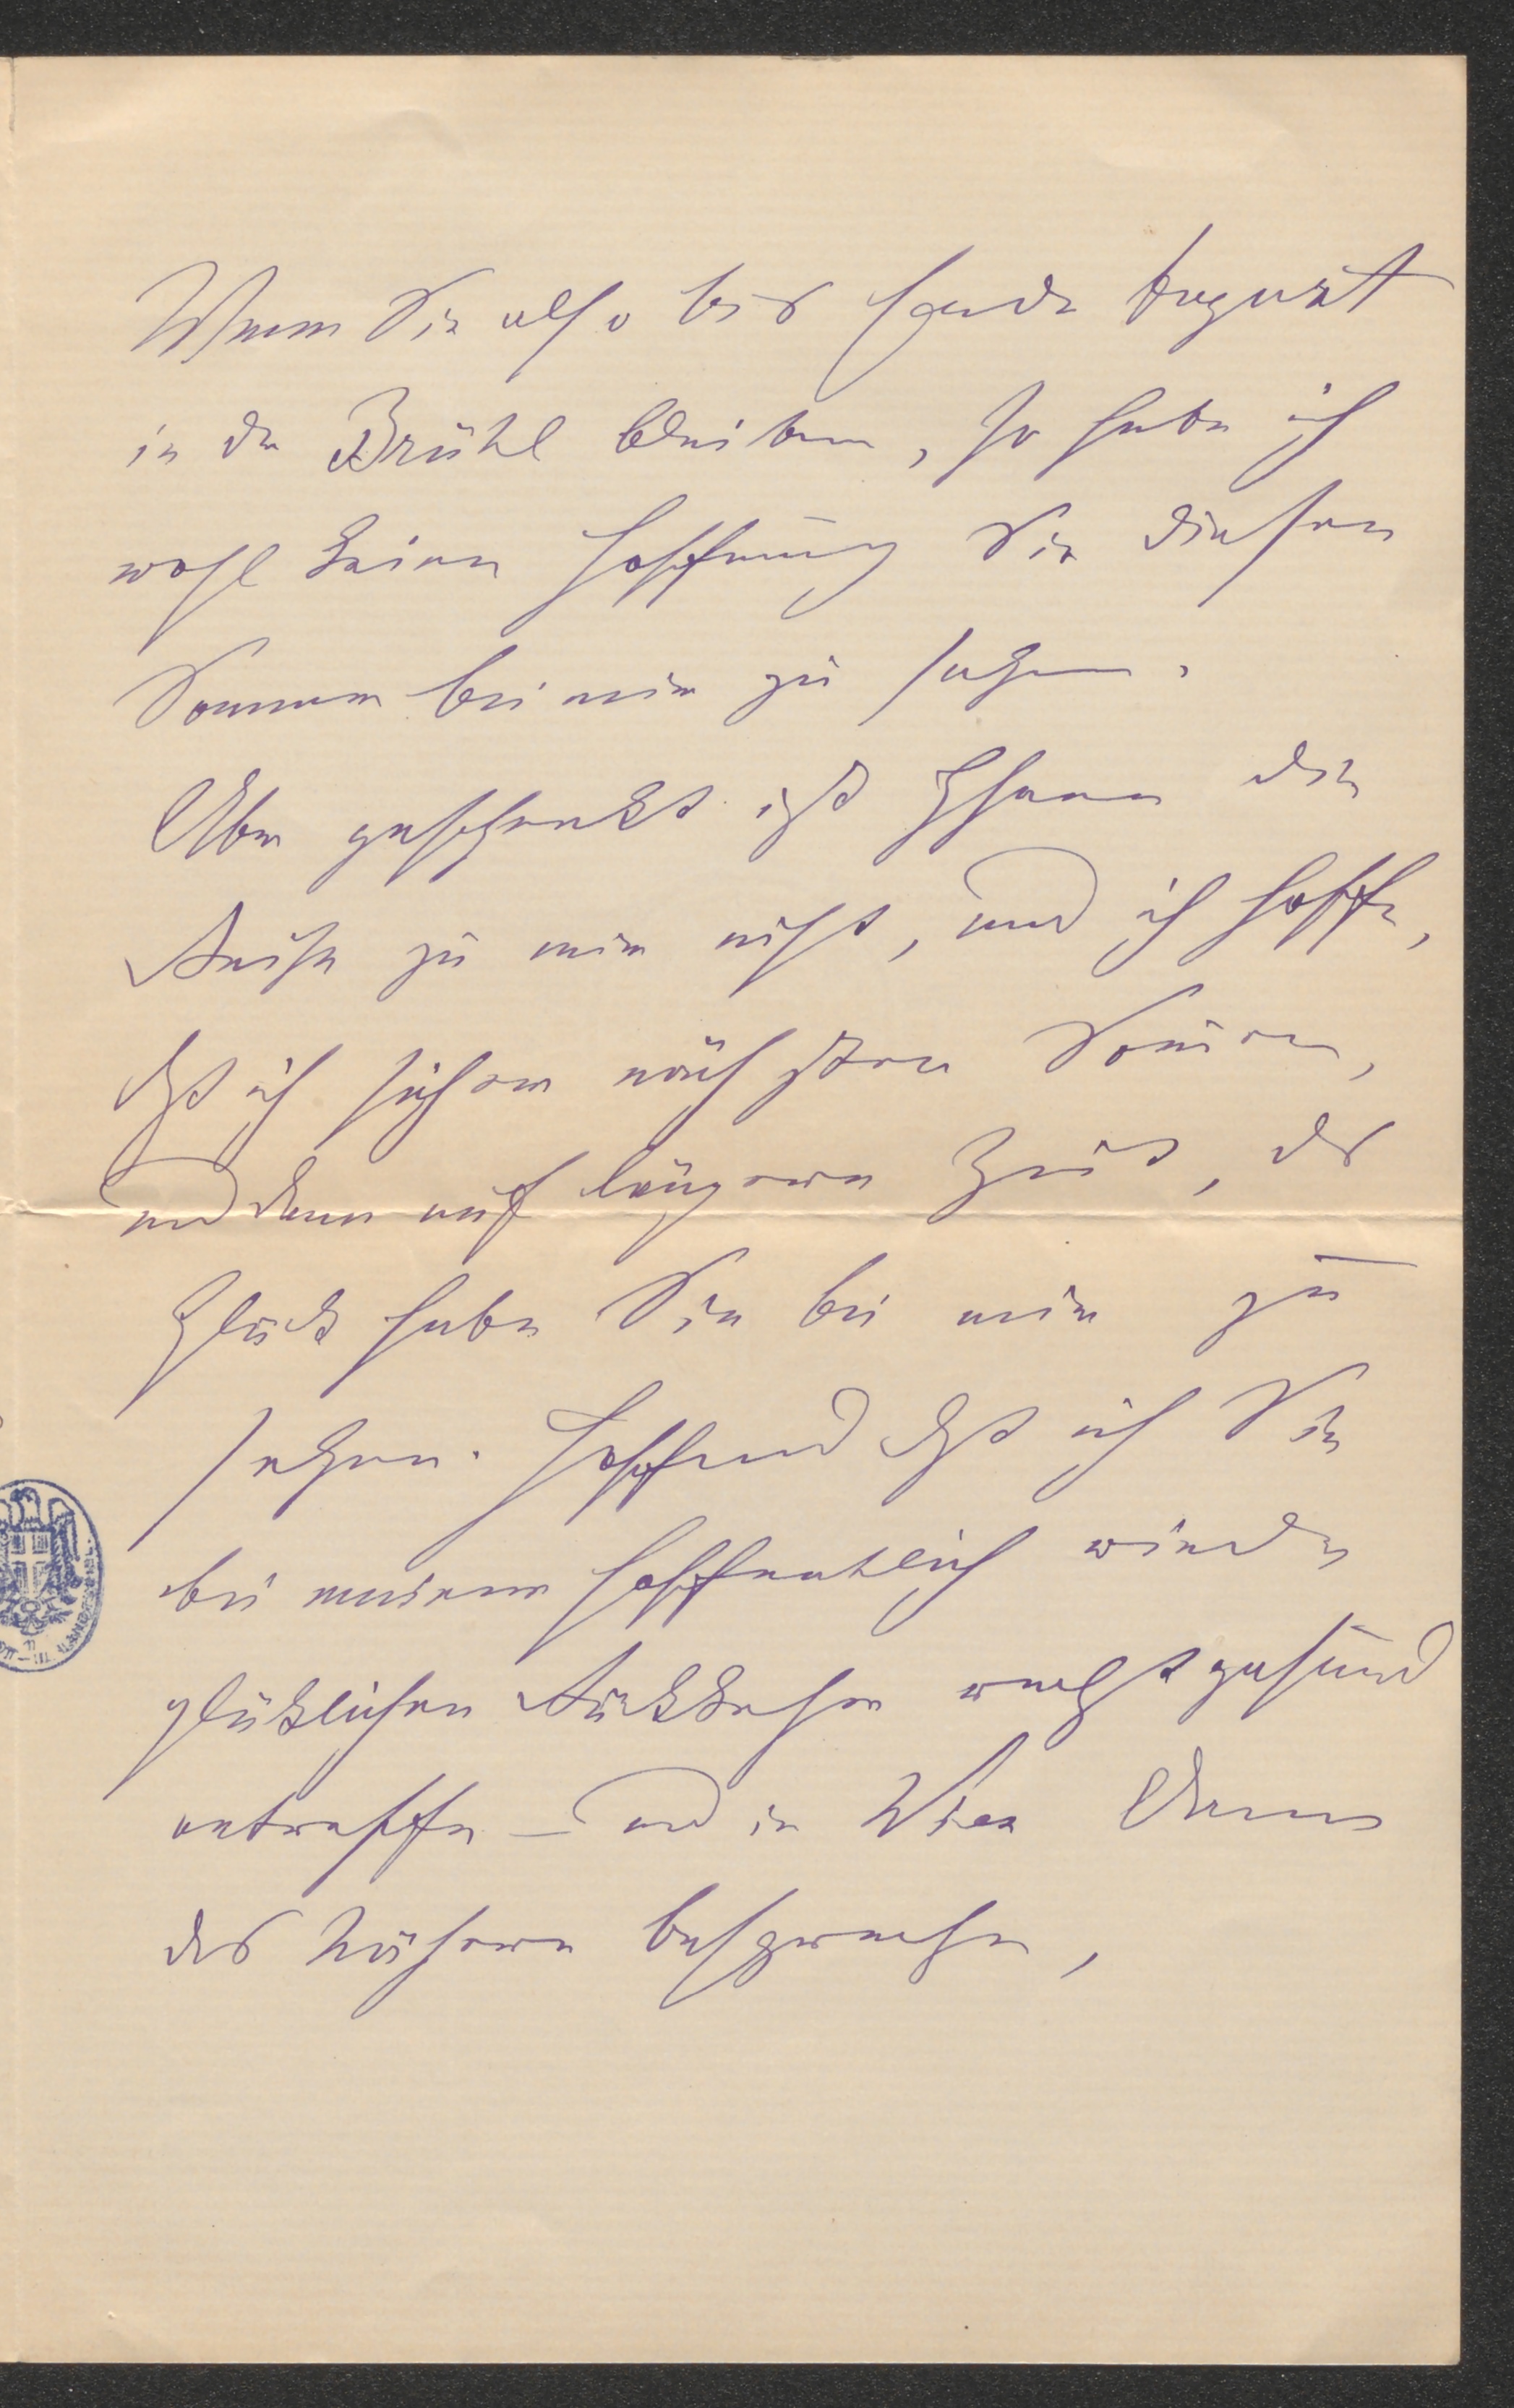 Wenn Sie also bis Ende August
in der Brühl bleiben, so habe ich
wohl keine Hoffnung Sie diesen
Sommer bei mir zu sehen.
Aber geschenkt ist Ihnen die
Reise zu mir nicht, und ich hoffe,
daß ich sicher nächsten Somer,
und dann auf längere Zeit, das
Glück habe Sie bei mir zu
sehen. Hoffend daß ich Sie
bei meiner hoffentlich wieder
glücklichen Rückkehr recht gesund
antreffe – und in Wien dann
das Nähere bespreche,